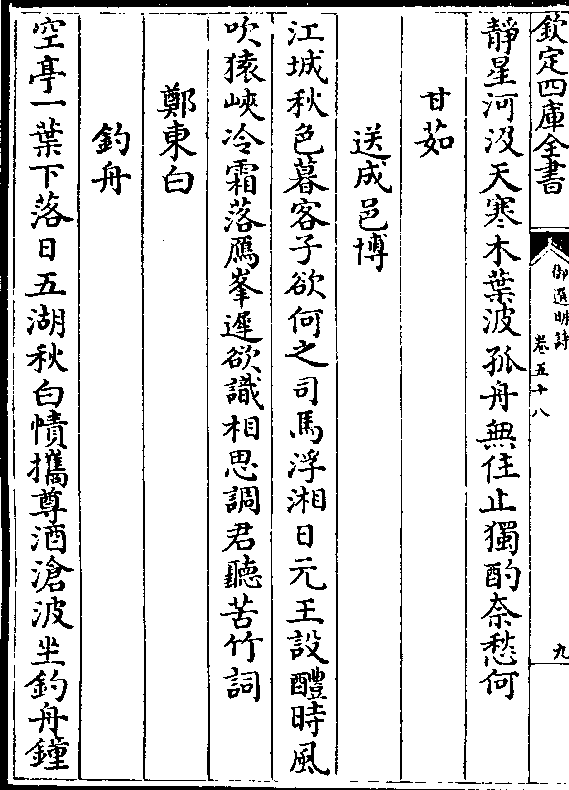 欽定四庫全書
御選明詩
卷五十八
九
靜星河沒天寒木葉波孤舟無住止獨酌奈愁何
甘茹
送成邑博
江城秋色暮客子欲何之司馬浮湘日元王設醴時風
吹猿峽冷霜落鴈峯遲欲識相思調君聽苦竹詞
鄭東白
釣舟
空亭一葉下落日五湖秋白幘攜尊酒滄波坐釣舟鐘